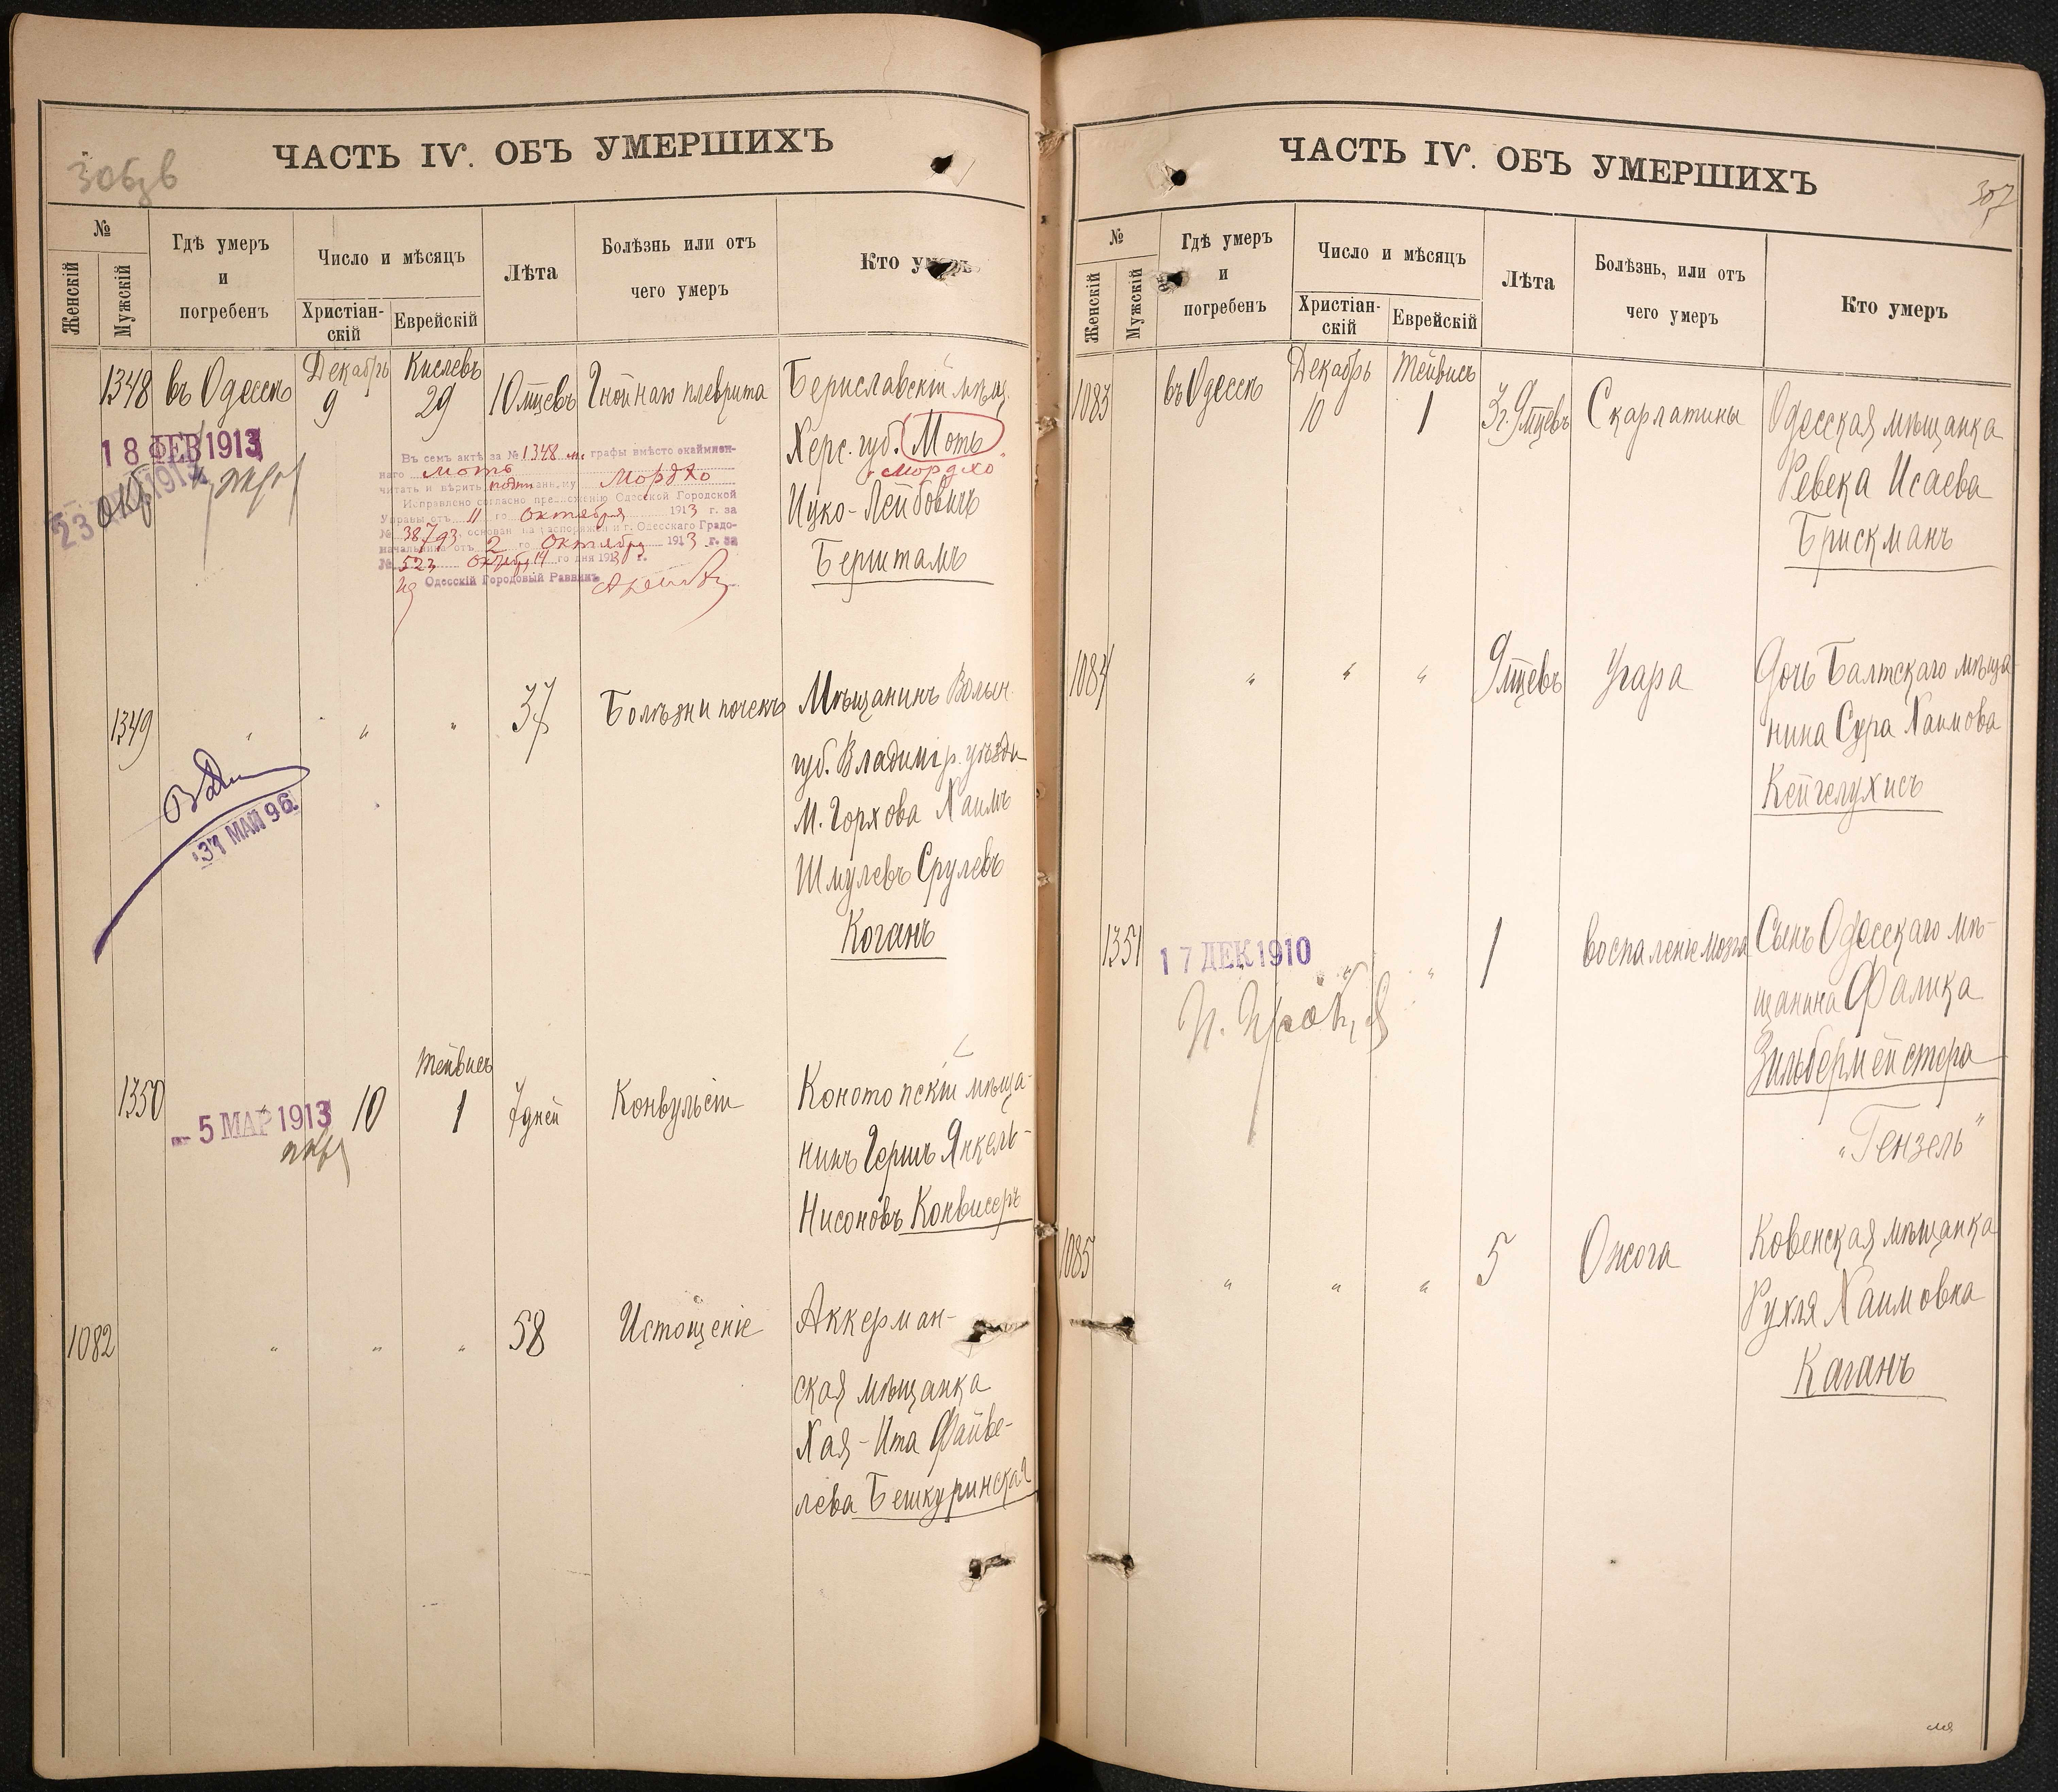 ЧАСТЬ IV. ОБЪ УМЕРШИХЪ
№
Женскій
Мужскій
Гдѣ умеръ
и
погребенъ
Число и мѣсяцъ
Христіан-
скій
Еврейскій
Лѣта
Болѣзнь или отъ
чего умеръ
Кто умеръ
1348 въ Одессѣ Декабрь 9 Кислевъ 29 10 мцевъ Гнойнаго плеврита Бериславскій мѣщ.
Херс. губ. Моть
"Мордхо"
Ицко-Лейбовичъ
Берштамъ
18 ФЕВ 1913
Въ семъ актѣ за № 1348 м. графы вмѣсто окаймлен-
наго Моть
читать и вѣрить Мордхо
Исправлено согласно предложенію Одесской Городской
Управы отъ 11 го Октября 1913 г. за
№ 38793, основан. на распоряженіи г. Одесскаго Градо-
начальника отъ 2 го Октября 1913 г. за
№ 523 го дня 1913 г.
Одесскій Городовый Раввинъ
1349 " " " 37 Болѣзни почекъ Мѣщанинъ Волын.
губ. Владимір. уѣзда
М. Горхова Хаимъ
Шмулевъ Срулевъ
Коганъ
31 МАЙ 96
1350 " 10 Тейвисъ 1 7 дней Конвульсіи Конотопскій мѣща-
нинъ Гершъ Янкель-
Нисоновъ Конвисеръ
- 5 МАР 1913
1082 " " " 58 Истощеніе Аккерман-
ская мѣщанка
Хая-Ита Файве-
лева Бешкуринская
ЧАСТЬ IV. ОБЪ УМЕРШИХЪ
307
№
Женскій
Мужскій
Гдѣ умеръ
и
погребенъ
Число и мѣсяцъ
Христіан-
скій
Еврейскій
Лѣта
Болѣзнь, или отъ
чего умеръ
Кто умеръ
1083 въ Одессѣ Декабрь 10 Тейвисъ 1 3г. 9 мцевъ Скарлатины Одесская мѣщанка
Ревека Исаева
Брискманъ
1084 " " " 9 мцевъ Угара Дочь Балтскаго мѣща-
нина Сура Хаимова
Кейгелухисъ
1351 " " " 1 воспаленіе мозга Сынъ Одесскаго мѣ-
щанина Фалика
Зильбермейстера
"Гензель"
17 ДЕК 1910
1085 " " " 5 Ожога Ковенская мѣщанка
Рухля Хаимовна
Каганъ